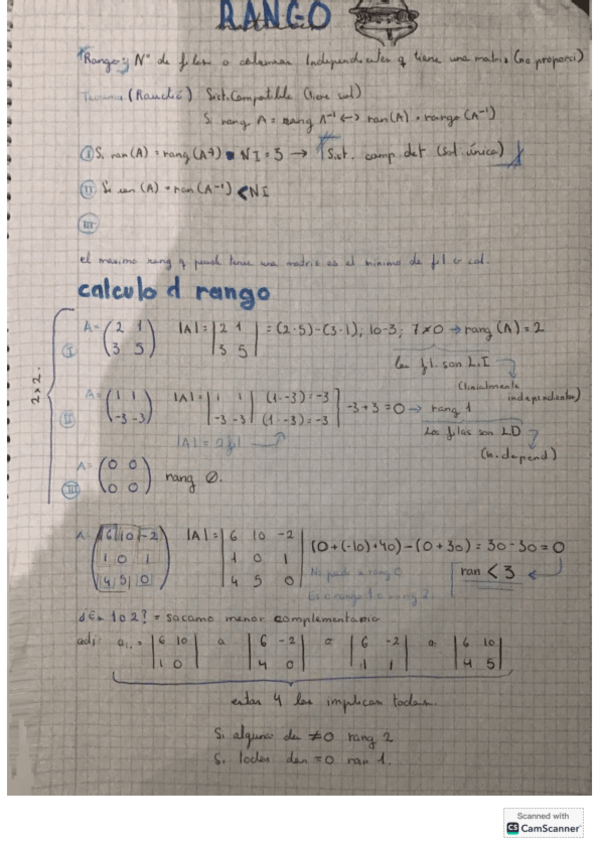 RANGO
Rango y Nº de filas o columnas Independientes q tiene una matriz (no proporci)
Teorema (Rouché) Sist. Compatible (tiene sol)
Si rang A = rang A⁻¹ <-> ran(A) = rango (A⁻¹)
I Si ran(A) = rang(A⁻¹) = NI = 3 → Sist. comp. det (sol. única)
II Si ran (A) = ran(A⁻¹) < NI
III
el maximo rang q puede tener una matriz es el minimo de fil o col.
calculo d rango
2x2.
I A = (2 1 / 3 5) |A| = |2 1 / 3 5| = (2·5)-(3·1); 10-3; 7≠0 → rang (A) = 2
las fil. son L.I
(linialmente independientes)
II A = (1 1 / -3 -3) |A| = |1 1 / -3 -3| (1·-3)=-3 (1·-3)=-3 -3+3=0 → rang 1
Las filas son LD
(l. depend)
III A = (0 0 / 0 0) rang Ø.
A = (6 10 -2 / 1 0 1 / 4 5 0) |A| = |6 10 -2 / 1 0 1 / 4 5 0| (0+(-10)+40)-(0+30) = 30-30 = 0
ran < 3
No puede s rang 0
Es o rango 1 o rang 2.
¿En 1 o 2? = sacamo menor complementario
adj: a₁₁ = |6 10 / 1 0| a |6 -2 / 4 0| a |6 -2 / 1 1| a |6 10 / 4 5|
estas 4 las implican todas.
Si alguna da ≠0 rang 2
Si todos dan =0 ran 1.
Scanned with
CS CamScanner